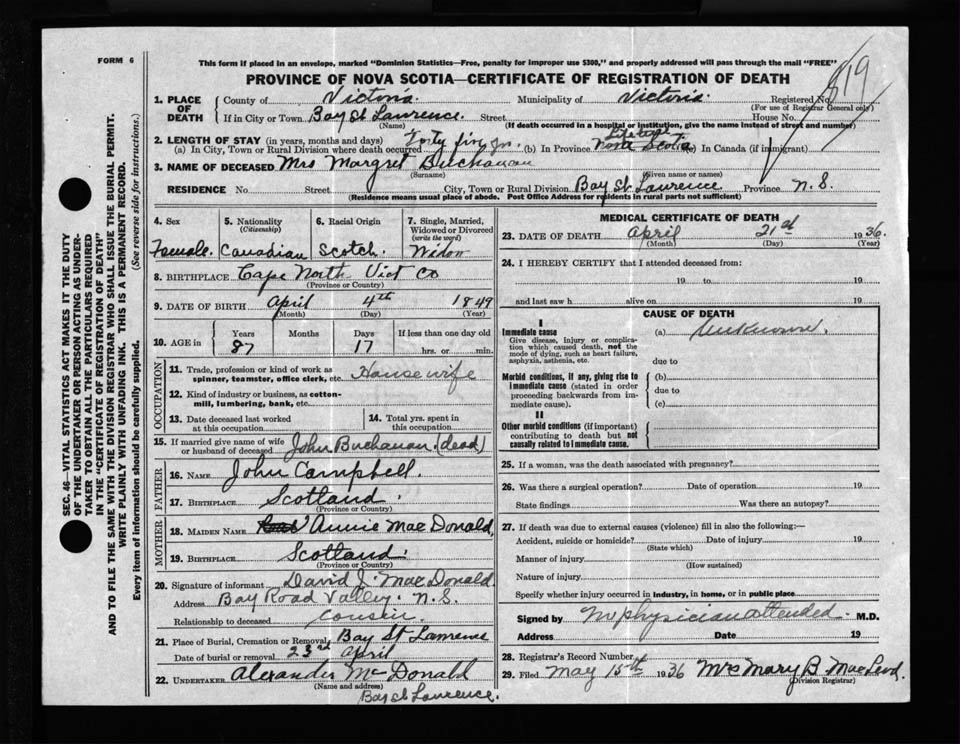 FORM 6
This form if placed in an envelope, marked "Dominion Statistics—Free, penalty for improper use $300," and properly addressed will pass through the mail "FREE"
PROVINCE OF NOVA SCOTIA—CERTIFICATE OF REGISTRATION OF DEATH
1. PLACE OF DEATH
County of Victoria Municipality of Victoria Registered No. 819
(For use of Registrar General only)
If in City or Town Bay St Lawrence. Street House No.
(Name) (If death occurred in a hospital or institution, give the name instead of street and number)
2. LENGTH OF STAY (in years, months and days)
(a) In City, Town or Rural Division where death occurred Forty five yrs. (b) In Province Nova Scotia (c) In Canada (if immigrant)
3. NAME OF DECEASED Mrs Margret Buchanan
(Surname) (Given name or names)
RESIDENCE No. Street City, Town or Rural Division Bay St. Lawrence Province N.S.
(Residence means usual place of abode. Post Office Address for residents in rural parts not sufficient)
4. Sex
Female.
5. Nationality
(Citizenship)
Canadian
6. Racial Origin
Scotch.
7. Single, Married, Widowed or Divorced
(write the word)
Widow
8. BIRTHPLACE Cape North Vict Co
(Province or Country)
9. DATE OF BIRTH April 4th 1849
(Month) (Day) (Year)
10. AGE in
Years Months Days If less than one day old
87 17 hrs. or min.
OCCUPATION
11. Trade, profession or kind of work as
spinner, teamster, office clerk, etc. Housewife
12. Kind of industry or business, as cotton-
mill, lumbering, bank, etc.
13. Date deceased last worked
at this occupation
14. Total yrs. spent in
this occupation
15. If married give name of wife
or husband of deceased John Buchanan (dead)
FATHER
16. NAME John Campbell.
17. BIRTHPLACE Scotland.
(Province or Country)
MOTHER
18. MAIDEN NAME Annie MacDonald,
19. BIRTHPLACE Scotland.
(Province or Country)
20. Signature of informant David J. MacDonald.
Address Bay Road Valley. N.S.
Relationship to deceased cousin
21. Place of Burial, Cremation or Removal Bay St Lawrence
Date of burial or removal 23rd April
22. UNDERTAKER Alexander McDonald
(Name and address)
Bay St Lawrence.
MEDICAL CERTIFICATE OF DEATH
23. DATE OF DEATH April 21st 1936.
(Month) (Day) (Year)
24. I HEREBY CERTIFY that I attended deceased from:
19 to 19
and last saw h alive on 19
CAUSE OF DEATH
I
Immediate cause
Give disease, injury or complica-
tion which caused death, not the
mode of dying, such as heart failure,
asphyxia, asthenia, etc.
(a) Unknown.
due to
Morbid conditions, if any, giving rise to
immediate cause (stated in order
proceeding backwards from im-
mediate cause).
(b)
due to
(c)
II
Other morbid conditions (if important)
contributing to death but not
causally related to immediate cause.
25. If a woman, was the death associated with pregnancy?
26. Was there a surgical operation? Date of operation 19
State findings Was there an autopsy?
27. If death was due to external causes (violence) fill in also the following:—
Accident, suicide or homicide? Date of injury 19
(State which)
Manner of injury
(How sustained)
Nature of injury
Specify whether injury occurred in industry, in home, or in public place
Signed by No physician attended. M.D.
Address Date 19
28. Registrar's Record Number
29. Filed May 15th 1936 Mrs Mary B. MacLeod.
(Division Registrar)
SEC. 46—VITAL STATISTICS ACT MAKES IT THE DUTY
OF THE UNDERTAKER OR PERSON ACTING AS UNDER-
TAKER TO OBTAIN ALL THE PARTICULARS REQUIRED
IN THE "CERTIFICATE OF REGISTRATION OF DEATH"
AND TO FILE THE SAME WITH THE DIVISION REGISTRAR WHO SHALL ISSUE THE BURIAL PERMIT.
WRITE PLAINLY WITH UNFADING INK. THIS IS A PERMANENT RECORD.
Every item of information should be carefully supplied. (See reverse side for instructions.)